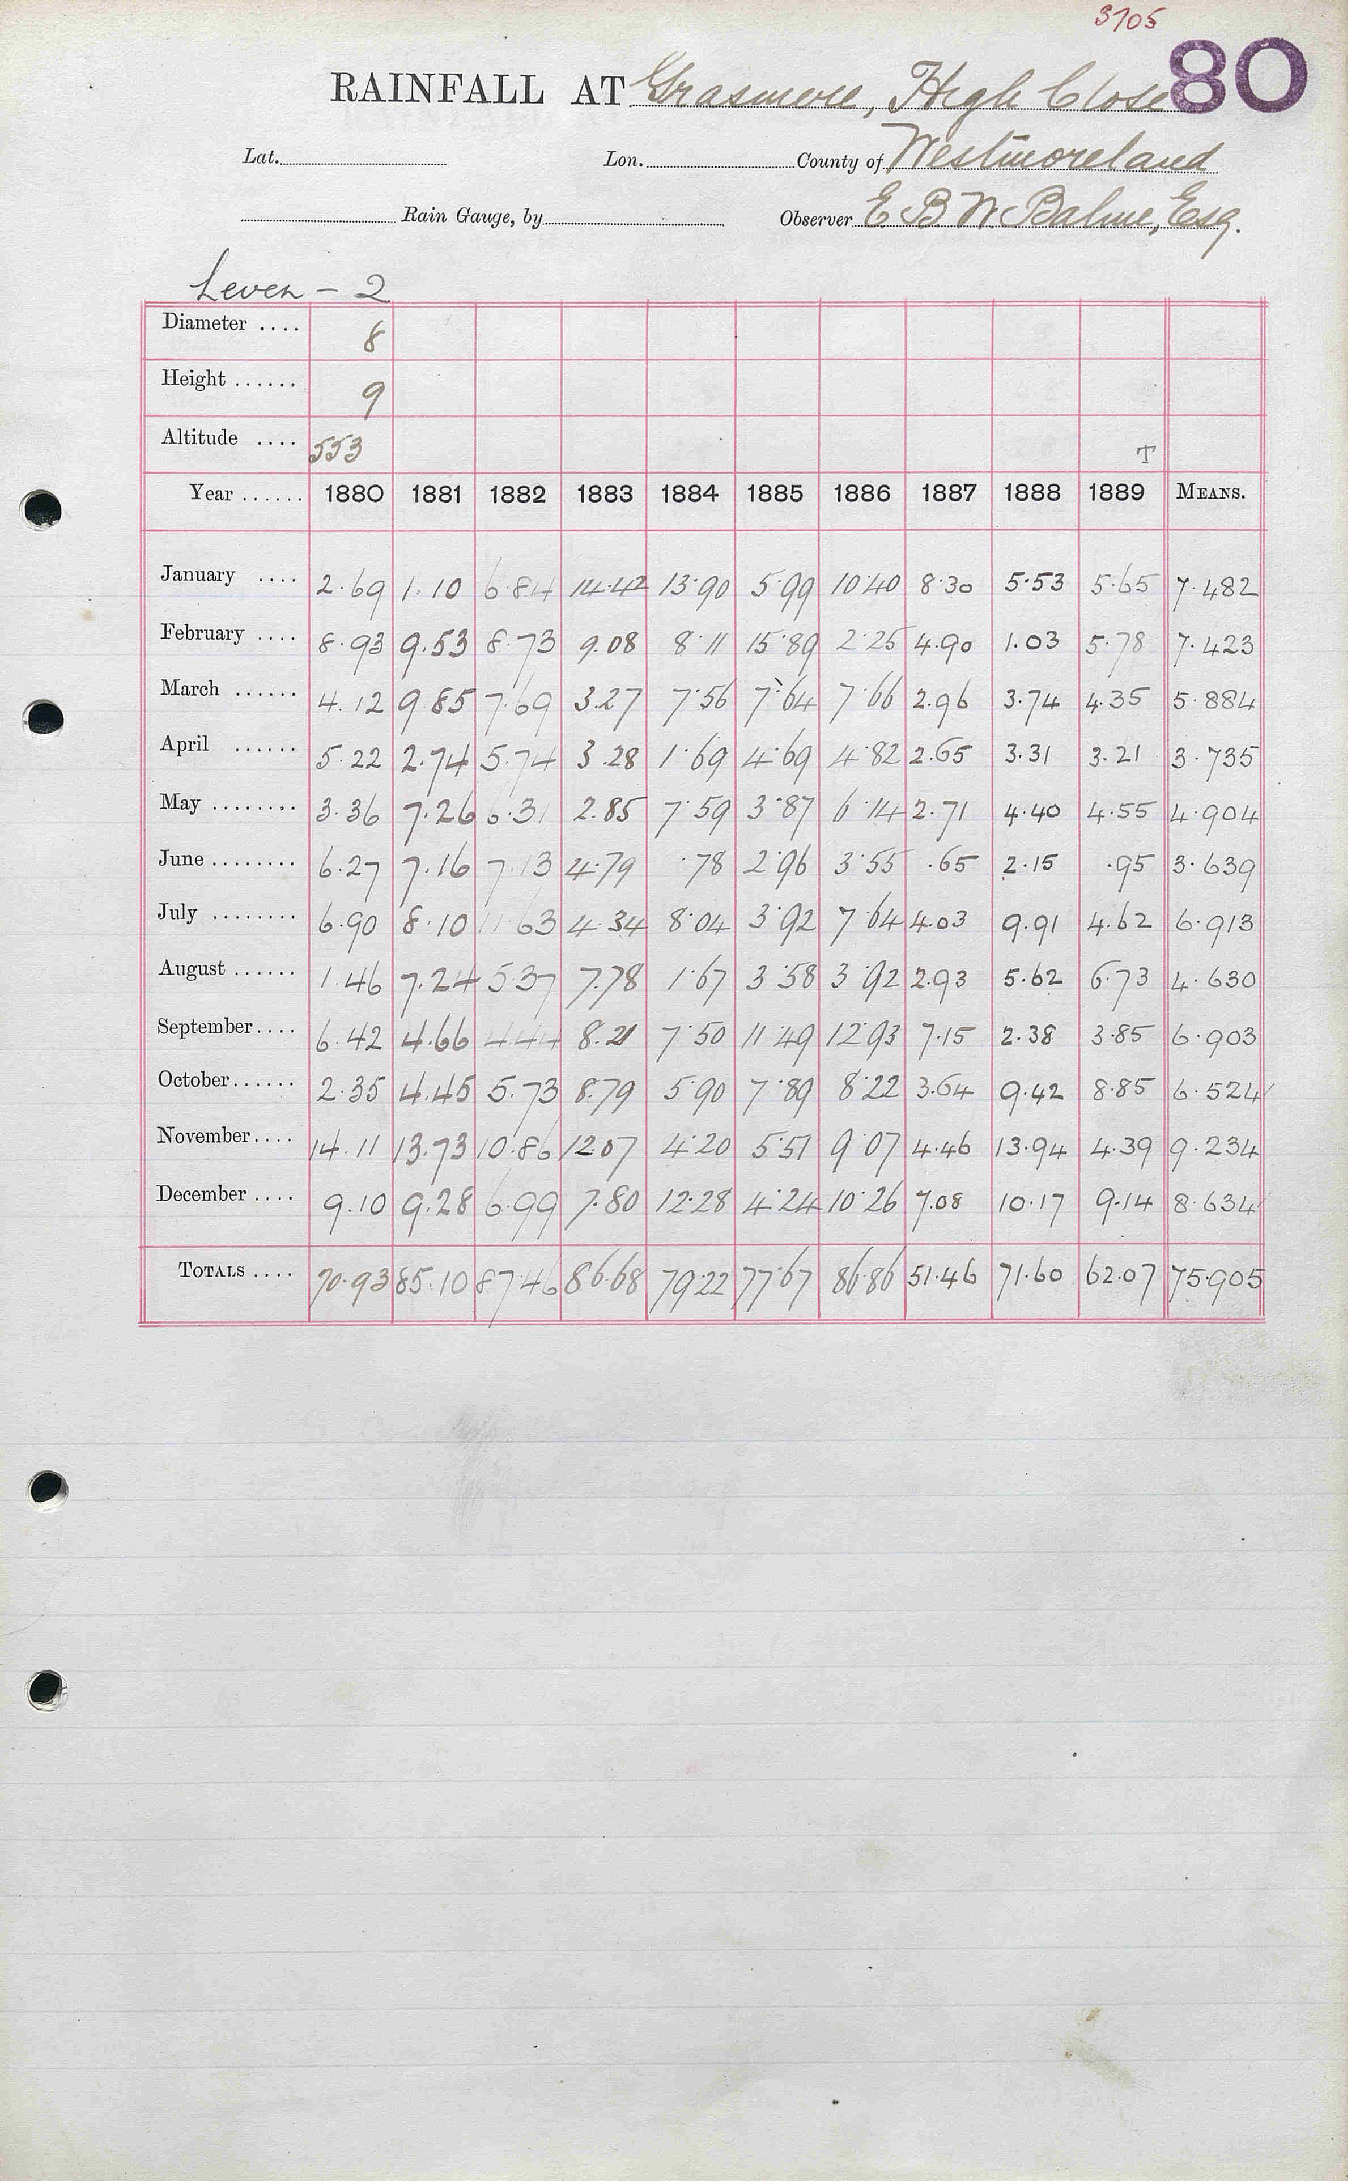 3705
80
RAINFALL AT Grasmere, High Close
Lat. Lon. County of Westmoreland
Rain Gauge, by Observer E B W Balme, Esq.
Leven - 2
Diameter .... 8
Height ...... 9
Altitude .... 553 T
Year ...... 1880 1881 1882 1883 1884 1885 1886 1887 1888 1889 MEANS.
January .... 2.69 1.10 6.84 14.42 13.90 5.99 10.40 8.30 5.53 5.65 7.482
February .... 8.93 9.53 8.73 9.08 8.11 15.89 2.25 4.90 1.03 5.78 7.423
March ...... 4.12 9.85 7.69 3.27 7.56 7.64 7.66 2.96 3.74 4.35 5.884
April ...... 5.22 2.74 5.74 3.28 1.69 4.69 4.82 2.65 3.31 3.21 3.735
May ........ 3.36 7.26 6.31 2.85 7.59 3.87 6.14 2.71 4.40 4.55 4.904
June ........ 6.27 7.16 7.13 4.79 .78 2.96 3.55 .65 2.15 .95 3.639
July ........ 6.90 8.10 11.63 4.34 8.04 3.92 7.64 4.03 9.91 4.62 6.913
August ...... 1.46 7.24 5.37 7.78 1.67 3.58 3.92 2.93 5.62 6.73 4.630
September.... 6.42 4.66 4.44 8.21 7.50 11.49 12.93 7.15 2.38 3.85 6.903
October...... 2.35 4.45 5.73 8.79 5.90 7.89 8.22 3.64 9.42 8.85 6.524
November.... 14.11 13.73 10.86 12.07 4.20 5.51 9.07 4.46 13.94 4.39 9.234
December .... 9.10 9.28 6.99 7.80 12.28 4.24 10.26 7.08 10.17 9.14 8.634
TOTALS .... 70.93 85.10 87.46 86.68 79.22 77.67 86.86 51.46 71.60 62.07 75.905